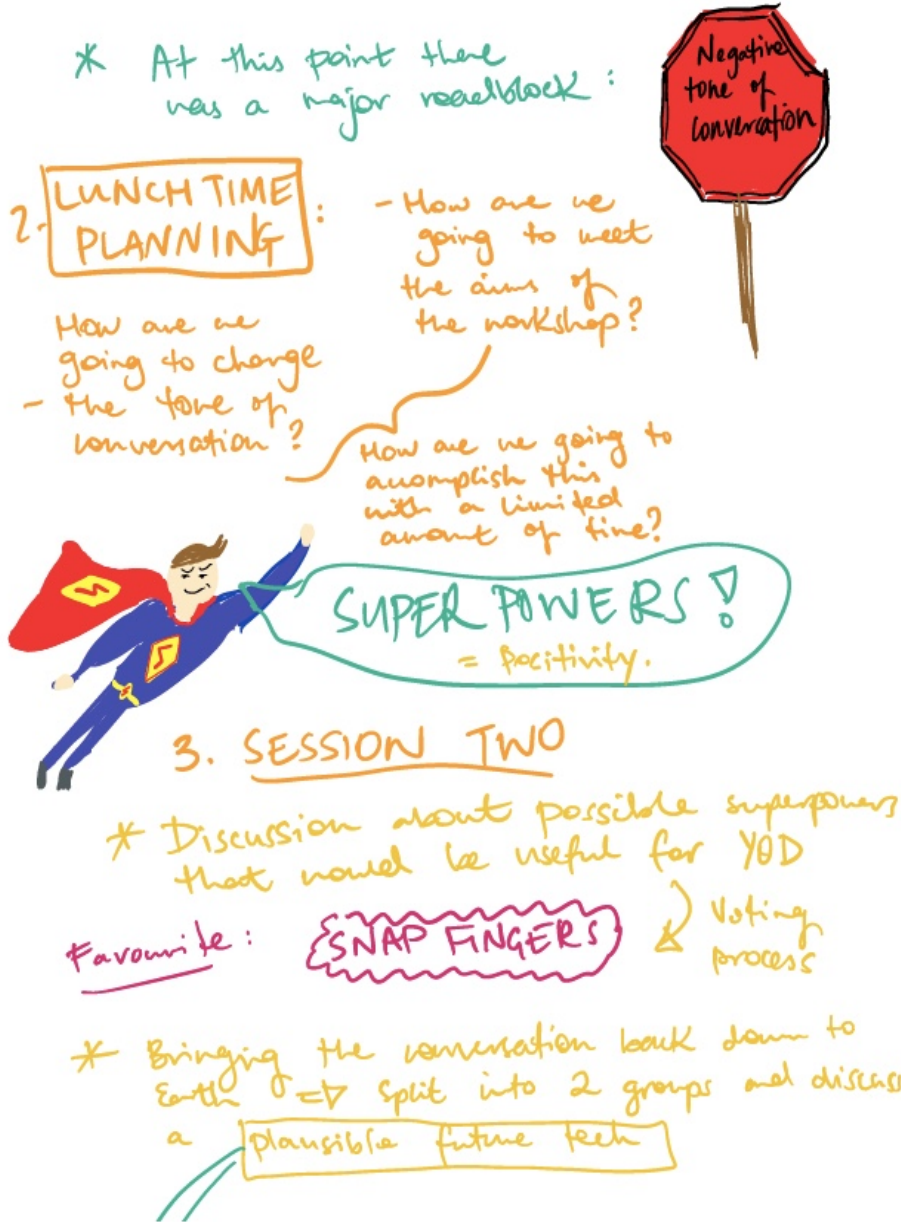 * At this point there
was a major roadblock :
Negative
tone of
conversation
2. LUNCH TIME
PLANNING :
- How are we
going to meet
the aims of
the workshop?
How are we
going to change
- the tone of
conversation?
How are we going to
accomplish this
with a limited
amount of time?
SUPER POWERS !
= Positivity.
3. SESSION TWO
* Discussion about possible superpowers
that would be useful for YOD
Voting
process
Favourite : SNAP FINGERS
* Bringing the conversation back down to
Earth => Split into 2 groups and discuss
a plausible future tech